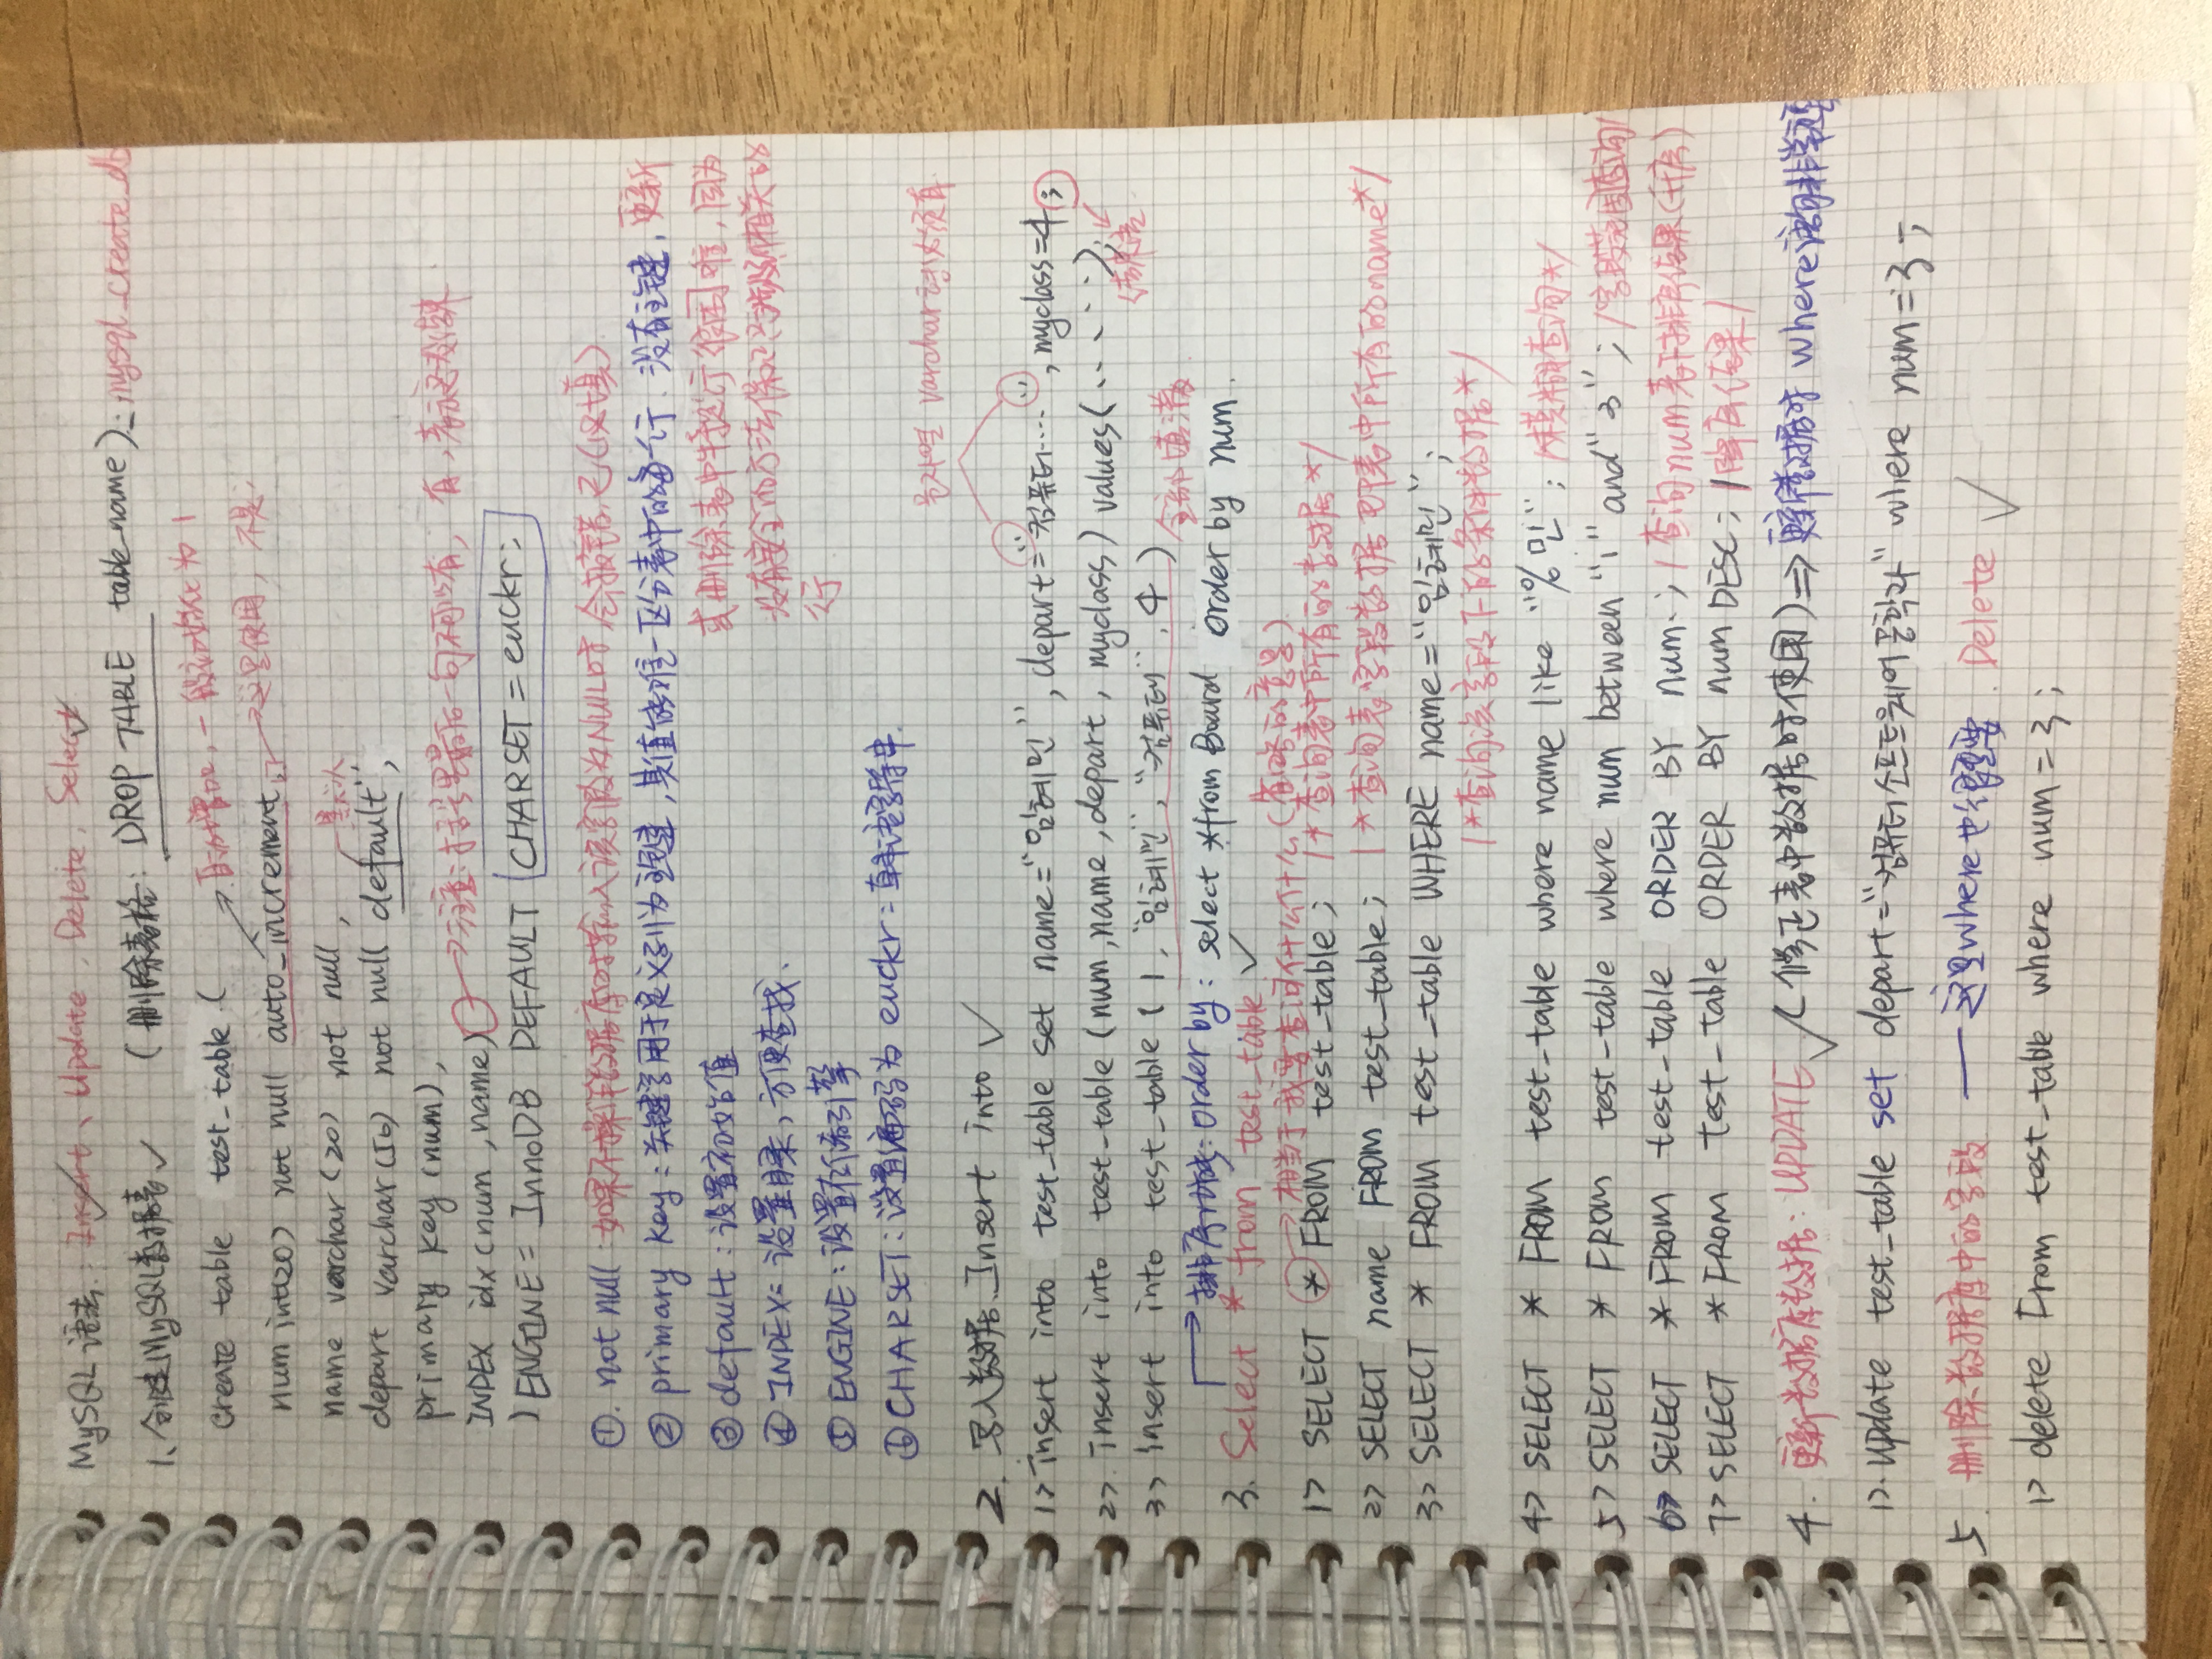 MySQL 语法: Insert、Update, Delete, Select
1、创建MySQL数据表 (删除表格: DROP TABLE table_name): mysql_create_db
create table test_table (
自动增加,一般初始化为1
num int(20) not null auto_increment,
这里使用, 不是;
name varchar(20) not null,
默认
depart varchar(50) not null default'',
primary key (num),
INDEX idx (num, name)
注意:括号里最后一句不可以有, 有,表示还没结束
) ENGINE = InnoDB DEFAULT CHARSET = euckr;
①. not null: 如果不操作数据库时输入该字段为NULL时,会报错 (必填)
② primary key: 关键字用于定义列为主键,其值能唯一区分表中的每一行. 没有主键,更新
或删除表中特定行很困难,因为
没有安全的方法保证只涉及到相关的
行
③ default: 设置初始值
④ INDEX: 设置目录,方便查找.
⑤ ENGINE: 设置存储引擎
⑥ CHARSET: 设置编码为 euckr = 韩语字符串.
문자열 varchar형 必须有.
2. 写入数据 Insert into
1> insert into test_table set name="임혜민", depart="컴퓨터....", myclass=4;
2>. insert into test_table (num,name,depart, myclass) values(......);
结束语
3> insert into test_table ( 1, "임혜민", "컴퓨터", 4 )
全部填满
排序 order by: select *from Board order by num.
3. Select * from test_table
相当于我要查询什么什么(省略的意思)
1> SELECT * FROM test_table; /*查询表中所有的数据*/
2> SELECT name FROM test_table; /*查询表字段数据 即表中所有的name*/
3> SELECT * FROM test_table WHERE name="임혜민";
/*查询该字段下的条件数据*/
4> SELECT * FROM test_table where name like "%민"; /*模糊查询*/
5> SELECT * FROM test_table where num between "1" and "3"; /字段范围查询/
6> SELECT * FROM test_table ORDER BY num.; / 查询num表下排序结果(升序)
7> SELECT * FROM test_table ORDER BY num DESC; /降序结果/
4. 更新数据库数据: UPDATE (修正表中数据时使用)⇒更新数据时 where语句非常重要
1>. Update test_table set depart="컴퓨터소프트웨어공학과" where num=3;
5. 删除数据库中的字段 — 这里where也很重要. Delete
1> delete From test_table where num=3;